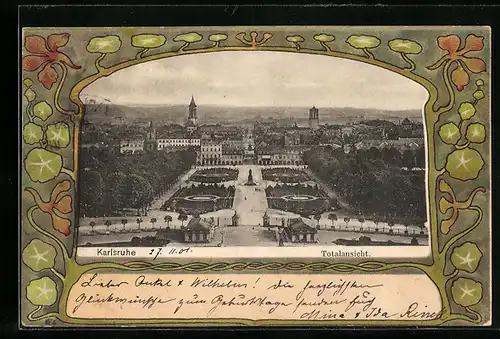 Karlsruhe 27.11.01. Totalansicht.
Lieber Onkel + Wilhelm! Die herzlichsten
Glückwünsche zum Geburtstage senden Euch
Mina + Ida